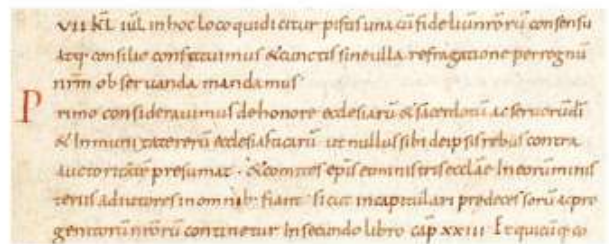 vii kł iul in hoc loco qui dicitur pistis una cū fideliū nrōrū consensu
atq; consilio constituimus & cunctis sine ulla refragatione per regnū
nrm observanda mandamus
Primo consideravimus de honore ecclesiarū & sacerdotū ac servorū dī
& inmunitate rerū ecclesiasticarū ut nullus sibi de ipsis rebus contra
auctoritatē presumat · & comites epis & ministris ecclae in eorum minis
teriis adiutores in omnib: fiant sicut in capitulari predecessorū ac pro
genitorū nrōrū continetur in secundo libro cap xxiii · Et quicūq; co